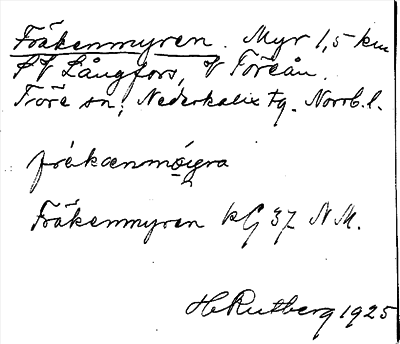 Fräkenmyren. Myr 1,5 km
SV Långfors, V Töreån.
Töre sn, Nederkalix tg. Norrb. l.
frékænmo̲i̯ra
Fräkenmyren kG 37 NM.
H Rutberg 1925